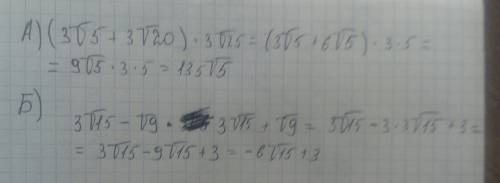 А) (3√5 + 3√20) · 3√25 = (3√5 + 6√5) · 3 · 5 =
= 9√5 · 3 · 5 = 135√5
Б)
3√15 - √9 · 3√15 + √9 = 3√15 - 3 · 3√15 + 3 =
= 3√15 - 9√15 + 3 = -6√15 + 3